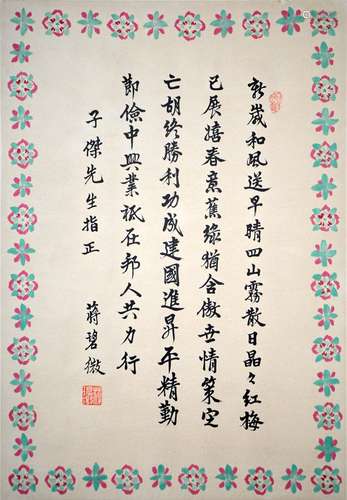 新歲和風送早晴四山霧散日晶々紅梅
已展嬉春意蕉綠猶含傲世情策定
亡胡終勝利功成建國進昇平精勤
節儉中興業祗在邦人共力行
子傑先生指正
蔣碧微